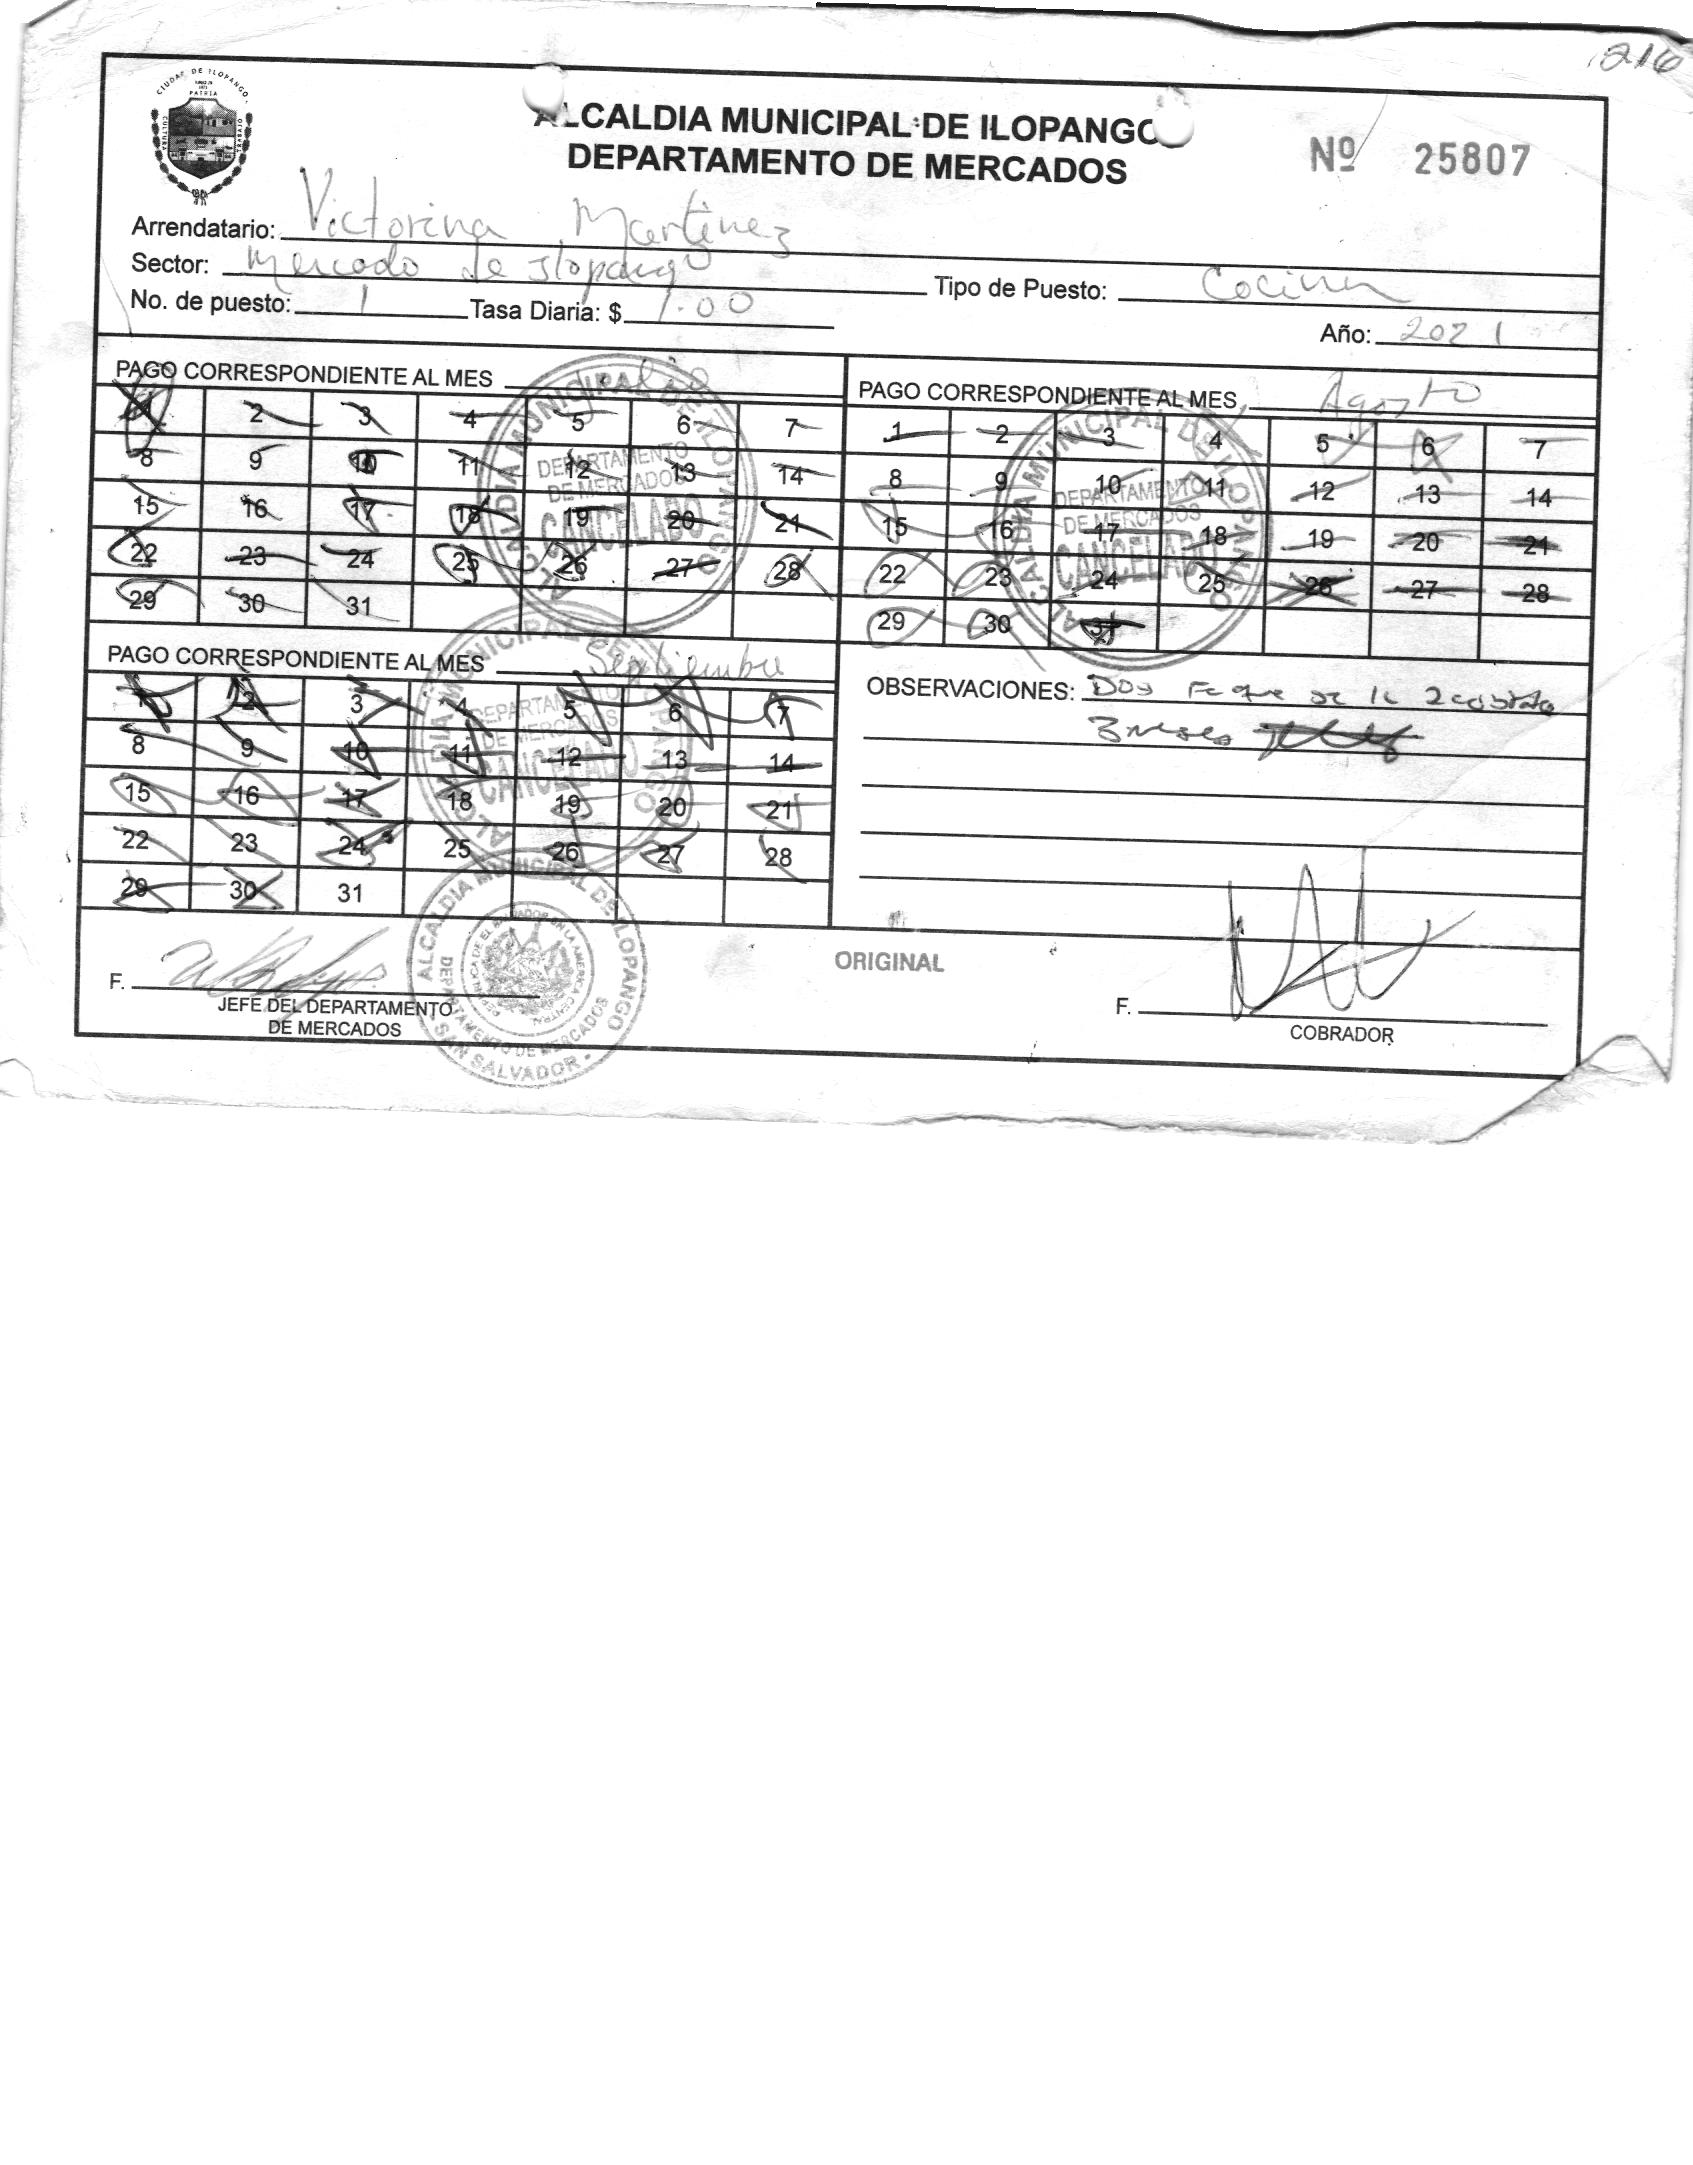 216
CIUDAD DE ILOPANGO
PATRIA
CULTURA
TRABAJO
ALCALDIA MUNICIPAL DE ILOPANGO
DEPARTAMENTO DE MERCADOS
Nº 25807
Arrendatario: Victorina Martinez
Sector: Mercado de Ilopango
Tipo de Puesto: Cocina
No. de puesto: 1 Tasa Diaria: $ 1.00
Año: 2021
PAGO CORRESPONDIENTE AL MES Julio
1 2 3 4 5 6 7
8 9 10 11 12 13 14
15 16 17 18 19 20 21
22 23 24 25 26 27 28
29 30 31
ALCALDIA MUNICIPAL DE ILOPANGO
DEPARTAMENTO
DE MERCADOS
CANCELADO
PAGO CORRESPONDIENTE AL MES Agosto
1 2 3 4 5 6 7
8 9 10 11 12 13 14
15 16 17 18 19 20 21
22 23 24 25 26 27 28
29 30 31
ALCALDIA MUNICIPAL DE ILOPANGO
DEPARTAMENTO
DE MERCADOS
CANCELADO
PAGO CORRESPONDIENTE AL MES Septiembre
1 2 3 4 5 6 7
8 9 10 11 12 13 14
15 16 17 18 19 20 21
22 23 24 25 26 27 28
29 30 31
ALCALDIA MUNICIPAL DE ILOPANGO
DEPARTAMENTO
DE MERCADOS
CANCELADO
OBSERVACIONES: Doy Fe que se le
3 meses
F.
JEFE DEL DEPARTAMENTO
DE MERCADOS
ALCALDIA MUNICIPAL DE ILOPANGO
DEPARTAMENTO DE MERCADOS
SAN SALVADOR
REPUBLICA DE EL SALVADOR EN LA AMERICA CENTRAL
ORIGINAL
F.
COBRADOR